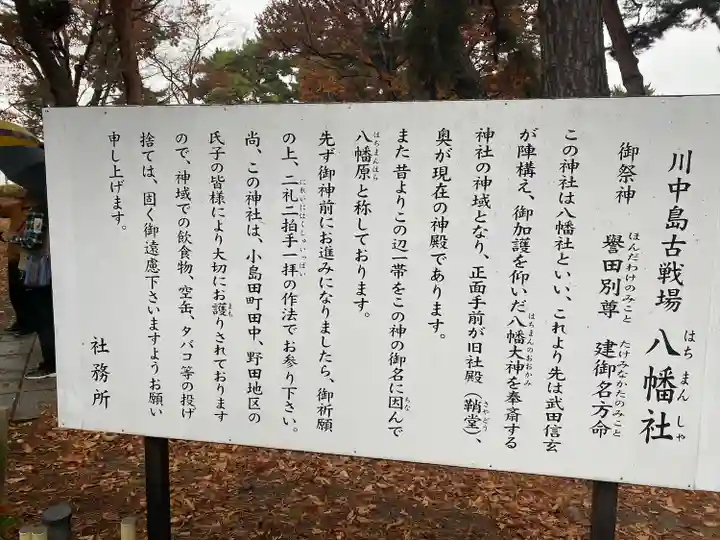 川中島古戦場 八幡社
はちまんしゃ
御祭神 誉田別尊 建御名方命
ほんだわけのみこと たけみなかたのみこと
この神社は八幡社といい、これより先は武田信玄
が陣構え、御加護を仰いだ八幡大神を奉斎する
はちまんのおおかみ
神社の神域となり、正面手前が旧社殿(鞘堂)、
さやどう
奥が現在の神殿であります。
また昔よりこの辺一帯をこの神の御名に因んで
ちな
八幡原と称しております。
はちまんはら
先ず御神前にお進みになりましたら、御祈願
の上、二礼二拍手一拝の作法でお参り下さい。
尚、この神社は、小島田町田中、野田地区の
氏子の皆様により大切にお護りされております
まも
ので、神域での飲食物、空缶、タバコ等の投げ
捨ては、固く御遠慮下さいますようお願い
申し上げます。
社務所